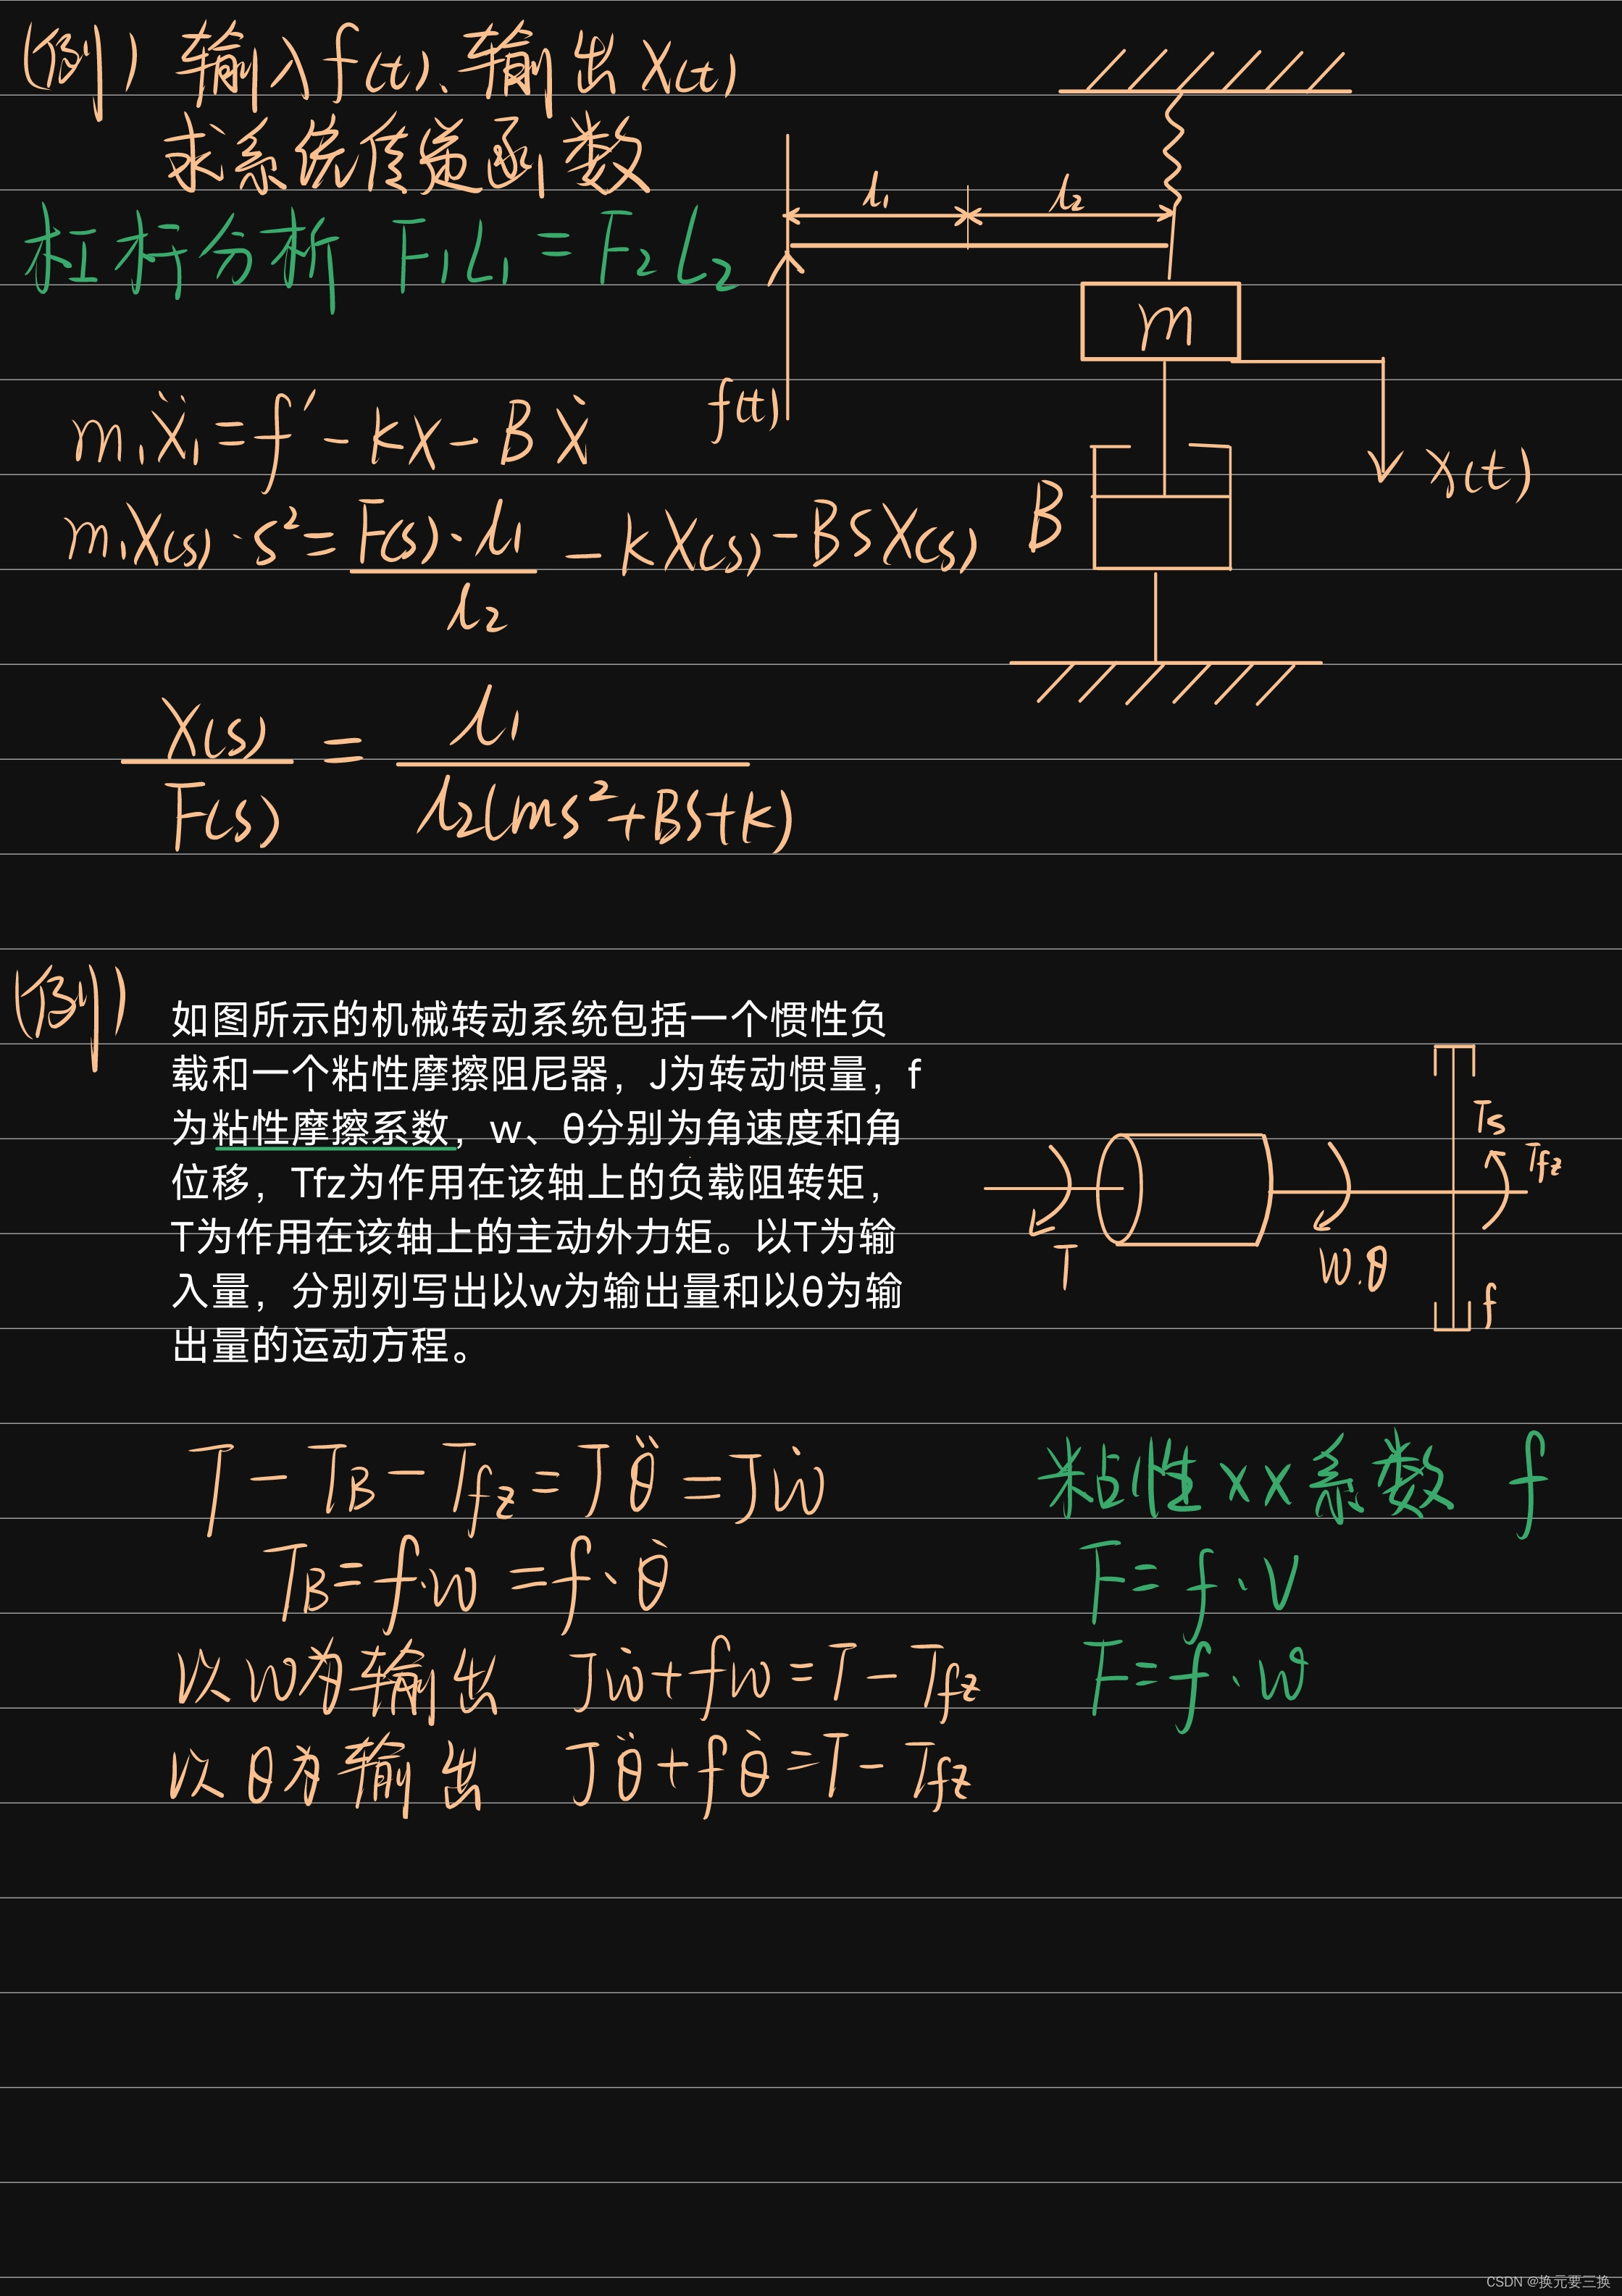 (例) 输入f(t)、输出X(t)
求系统传递函数
杠杆分析 F₁L₁=F₂L₂
l₁ l₂
m
f(t)
X(t)
B
m₁Ẍ₁=f′-kX-BẊ
m₁X(s)·s²=F(s)·l₁/l₂-kX(s)-BSX(s)
X(s)/F(s)=l₁/l₂(ms²+BS+k)
(例)
如图所示的机械转动系统包括一个惯性负
载和一个粘性摩擦阻尼器，J为转动惯量，f
为粘性摩擦系数，w、θ分别为角速度和角
位移，Tfz为作用在该轴上的负载阻转矩，
T为作用在该轴上的主动外力矩。以T为输
入量，分别列写出以w为输出量和以θ为输
出量的运动方程。
T
W.θ
Ts
Tfz
f
T-TB-Tfz=Jθ̈=Jẇ
TB=f·w=f·θ̇
以W为输出 Jẇ+fw=T-Tfz
以θ为输出 Jθ̈+fθ̇=T-Tfz
粘性xx系数 f
F=f·V
F=f·w
CSDN @换元要三换